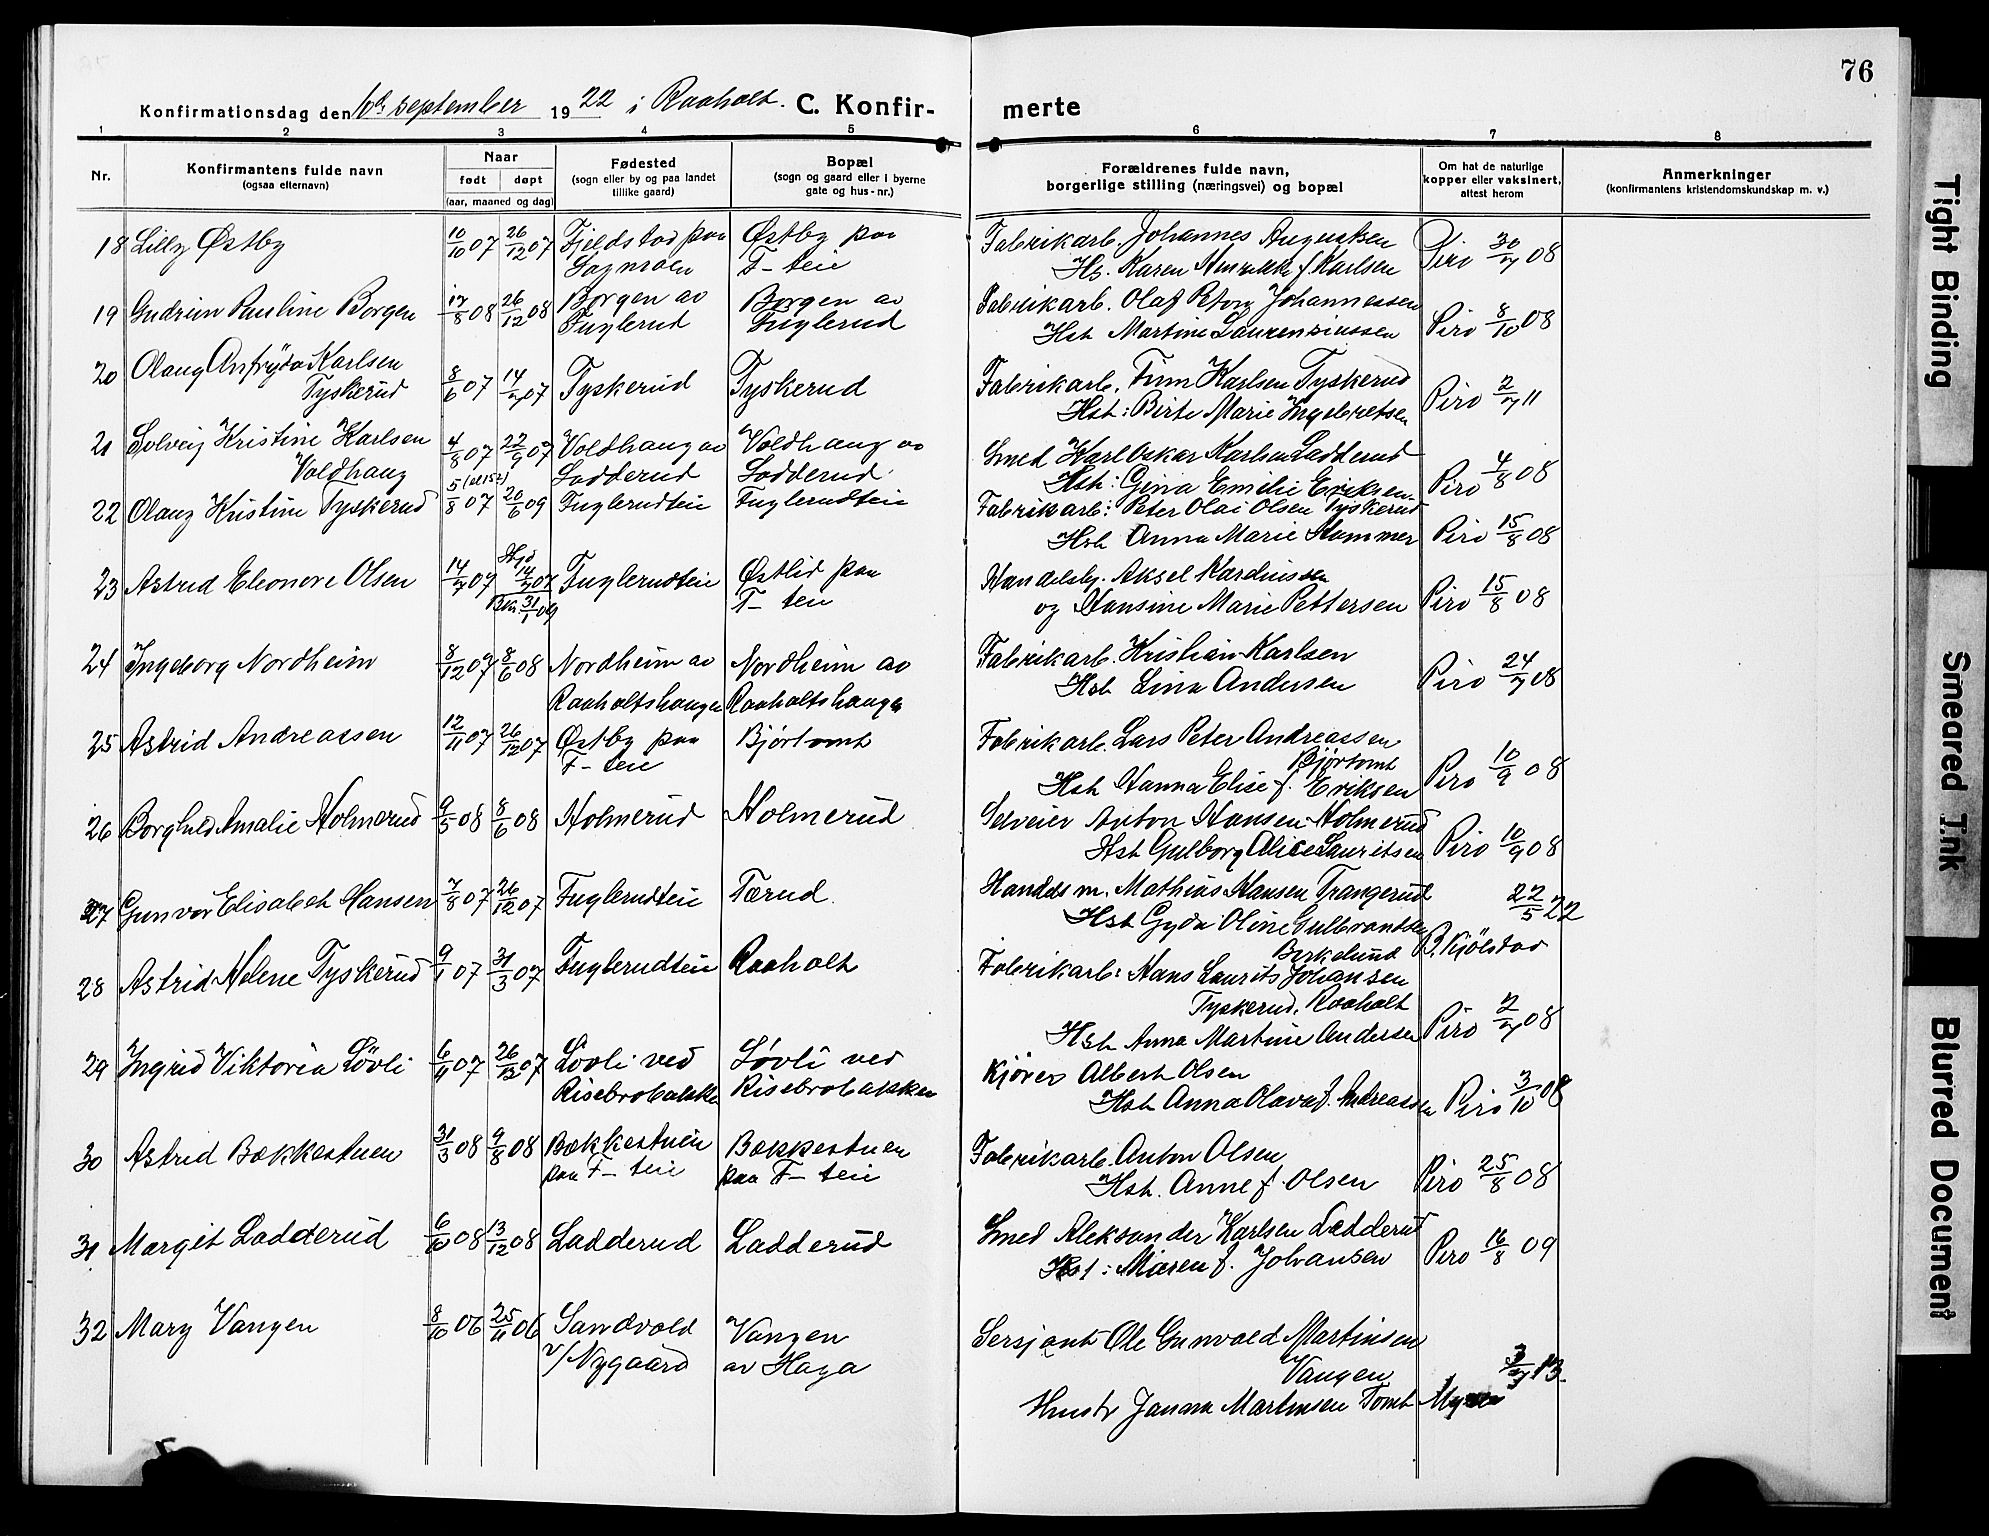 76
Konfirmationsdag den 10de september 1922 i Raaholt. C. Konfir-
merte
1 2 3 4 5 6 7 8
Nr.
Konfirmantens fulde navn
(ogsaa efternavn)
Naar
født døpt
(aar, maaned og dag)
Fødested
(sogn eller by og paa landet
tillike gaard)
Bopæl
(sogn og gaard eller i byerne
gate og hus-nr.)
Forældrenes fulde navn,
borgerlige stilling (næringsvei) og bopæl
Om hat de naturlige
kopper eller vaksinert,
attest herom
Anmerkninger
(konfirmantens kristendomskundskap m. v.)
18 Lilly Østby 10/10 07 26/12 07 Fjeldstad paa Østby paa Fabrikarb. Johannes Augustsen Piro 30/7 08
F- teie Hs. Karen f Karlsen
19 Gudrun Pauline Borgen 17/8 08 26/12 08 Borgen av Borgen av Fabrikarb. Olaf Johannessen Piro 8/10 08
Fuglerud Fuglerud Hst Martine
20 Olaug Karlsen 8/6 07 14/7 07 Tyskerud Tyskerud Fabrikarb. Finn Karlsen Tyskerud Piro 2/7 11
Tyskerud Hst: Birte Marie Ingebretsen
21 Solveig Kristine Karlsen 4/8 07 22/9 07 Voldhaug av Voldhaug av Smed Karl Oskar Karlsen Ladderud Piro 4/8 08
Voldhaug Ladderud Ladderud Hst: Gina Emilie Eriksen
22 Olaug Kristine Tyskerud 5/8 07 20/6 09 Fuglerudteie Fuglerudteie Fabrikarb: Peter Olai Olsen Tyskerud Piro 15/8 08
Hst Anna Marie Hammer
23 Astrid Eleonore Olsen 14/7 07 14/7 07 Fuglerudteie Østlid paa Handelsbj. Aksel Piro 15/8 08
31/1 09 F- teie og Hansine Marie Pettersen
24 Ingeborg Nordheim 8/12 07 8/6 08 Nordheim av Nordheim av Fabrikarb. Kristian Karlsen Piro 24/7 08
Raaholtshaugen Raaholtshaugen Hst Lina Andersen
25 Astrid Andreassen 12/11 07 26/12 07 Østby paa Bjørtomt Fabrikarb. Lars Peter Andreassen Piro 10/9 08
F- teie Bjørtomt
Hst Hanna Elise f. Eriksen
26 Borghild Amalie Holmerud 9/5 08 8/6 08 Holmerud Holmerud Selveier Anton Hansen Holmerud Piro 10/9 08
Hst Gulborg Alice Lauritsen
27 Gunvor Elisabet Hansen 7/8 07 26/12 07 Fuglerudteie Tærud. Handels m. Mathias Hansen Trangerud 22/5 22
Hst Gyda Oline Gulbrandsen
Berkelund B. Kjølstad
28 Astrid Helene Tyskerud 9/1 07 31/3 07 Fuglerudteie Raaholt Fabrikarb: Hans Laurits Johansen
Tyskerud, Raaholt Piro 2/7 08
Hst Anna Martine Andersen
29 Ingrid Viktoria Løvli 6/11 07 26/12 07 Løvli ved Løvli ved Kjører Albert Olsen
Risebrobakken Risebrobakken Hst Anna Olava f. Andreassen Piro 3/10 08
30 Astrid Bækkestuen 31/3 08 9/8 08 Bækkestuen Bækkestuen Fabrikarb. Anton Olsen Piro 25/8 08
paa F- teie paa F- teie Hst. Anne f Olsen
31 Margit Ladderud 6/10 08 13/12 08 Ladderud Ladderud Smed Aleksander Karlsen Ladderud Piro 16/8 09
Hst: Maren f. Johansen
32 Mary Vangen 8/10 06 25/11 06 Sandvold Vangen Sersjant Ole Gunvald Martinsen
v/Nygaard av Haga Vangen 13.
Hustr Martinsen Tomt
Tight Binding
Smeared Ink
Blurred Document